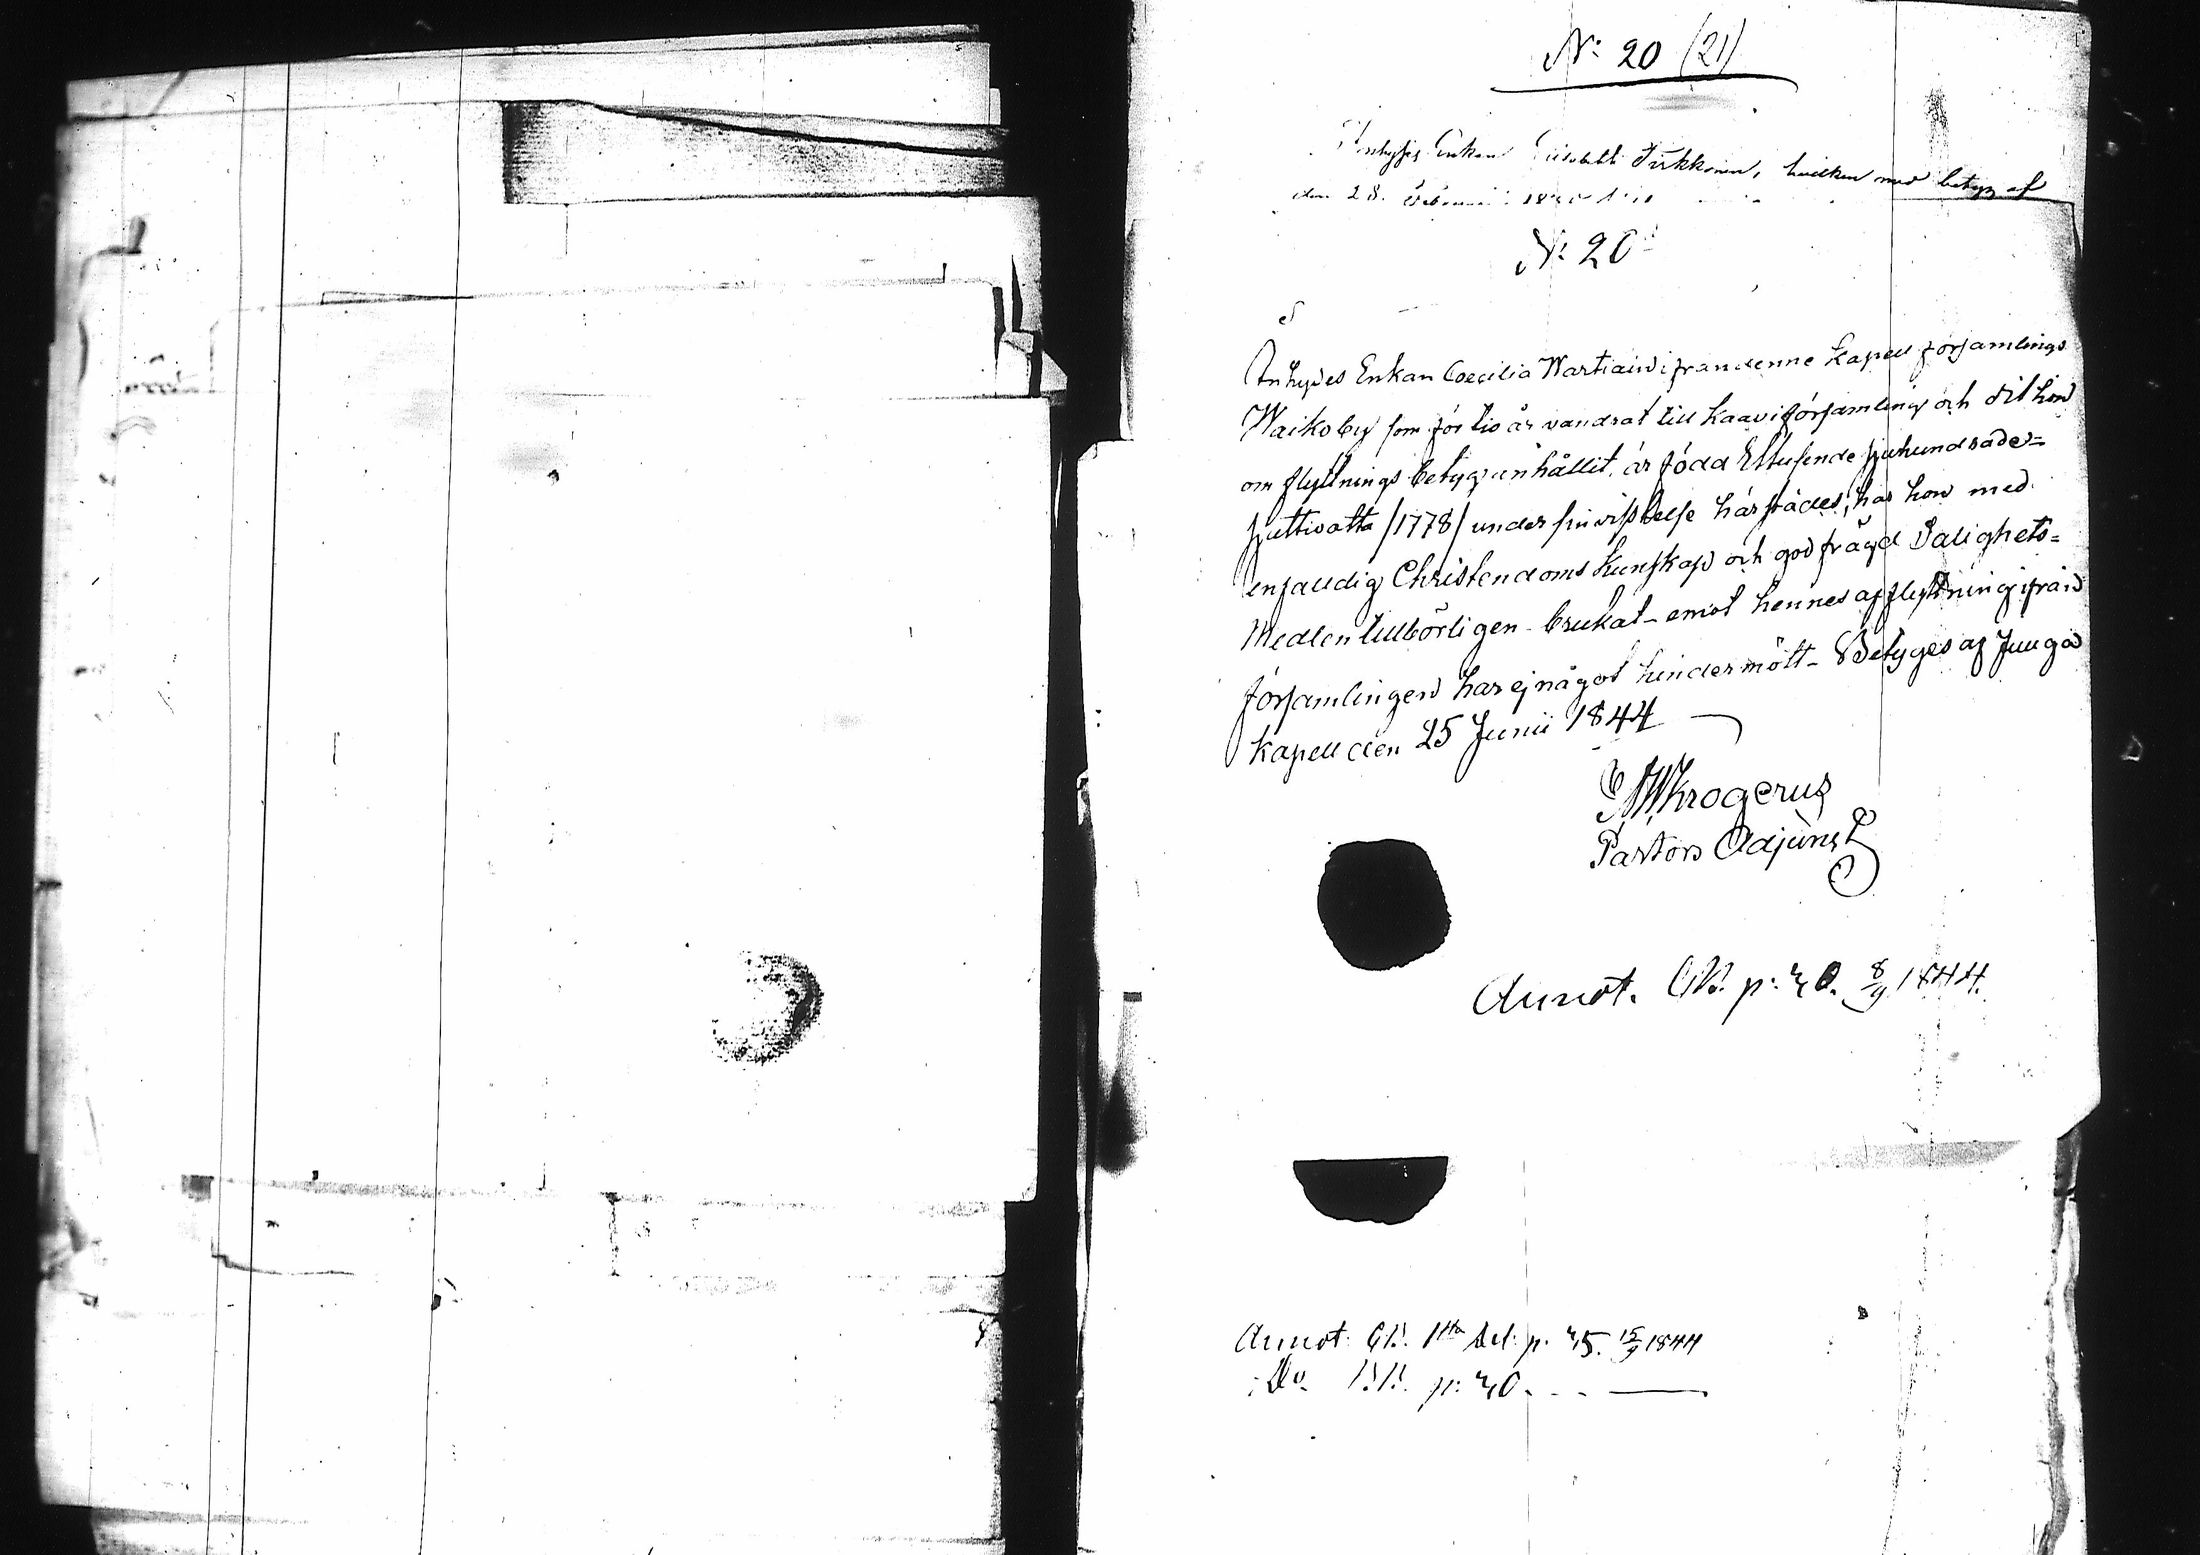 N: 20 (21)
Inhyses Enkan Elisabeth Turkkonen, hvilken med betyg af
den 28. Februarii
N: 20
Inhyses Enkan Coecilia Wartiain ifran denne Kapell församlings
Waikoby som för tio år vandrat till Kaavi församling och dit hon
om flyttnings betyg anhållit, är född Ettusende sjuhundrade=
sjuttioatta /1778/ under sin vistelse härstädes, har hon med
enfalldig Christendoms Kunskap och god frägd Salighets=
Medlen tillbörligen brukat - emot hennes afflyttning ifrån
församlingen har ej något hinder mött - Betyges af Juuga
Kapell den 25 Junii 1844
Krogerus
Pastors Adjunct
Annot. CB. p: 40. 8/9 1844.
Annot: CB. 1sta Del: p. 45. 15/9 1844
Do. BB. p: 40. - - —